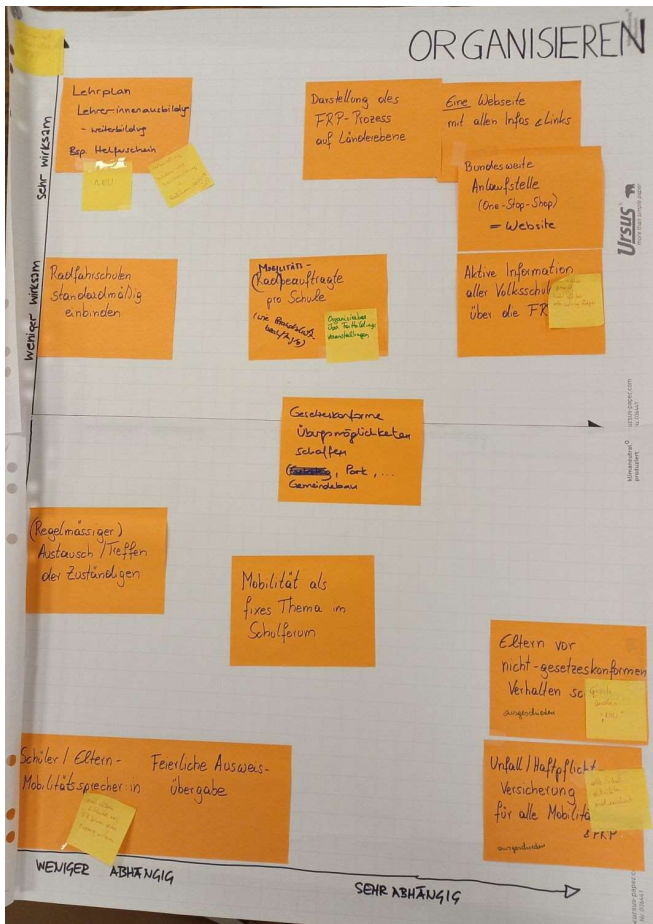 ORGANISIEREN
Sehr wirksam
Lehrplan
Lehrer:innenausbildg
- weiterbildg
Bsp. Helferschein
NEU
Darstellung des
FRP-Prozess
auf Länderebene
Eine Webseite
mit allen Infos & Links
Bundesweite
Anlaufstelle
(One-Stop-Shop)
= Website
Ursus
more than simple paper
weniger wirksam
Radfahrschulen
standardmäßig
einbinden
Mobilitäts-
(Radbeauftragte
pro Schule
Aktive Information
aller Volksschul
über die FR
ursus-paper.com
klimaneutral
produziert
Gesetzeskonforme
Übungsmöglichkeiten
schaffen
, Park, ...
Gemeindebau
(Regelmässiger)
Austausch / Treffen
der Zuständigen
Mobilität als
fixes Thema im
Schulforum
Eltern vor
nicht-gesetzeskonformen
Verhalten sc
ausgeschieden
Schüler / Eltern-
Mobilitätssprecher:in
Feierliche Ausweis-
übergabe
Unfall / Haftpflicht
Versicherung
für alle Mobilitä
& FRP
ausgeschieden
WENIGER ABHÄNGIG
SEHR ABHÄNGIG